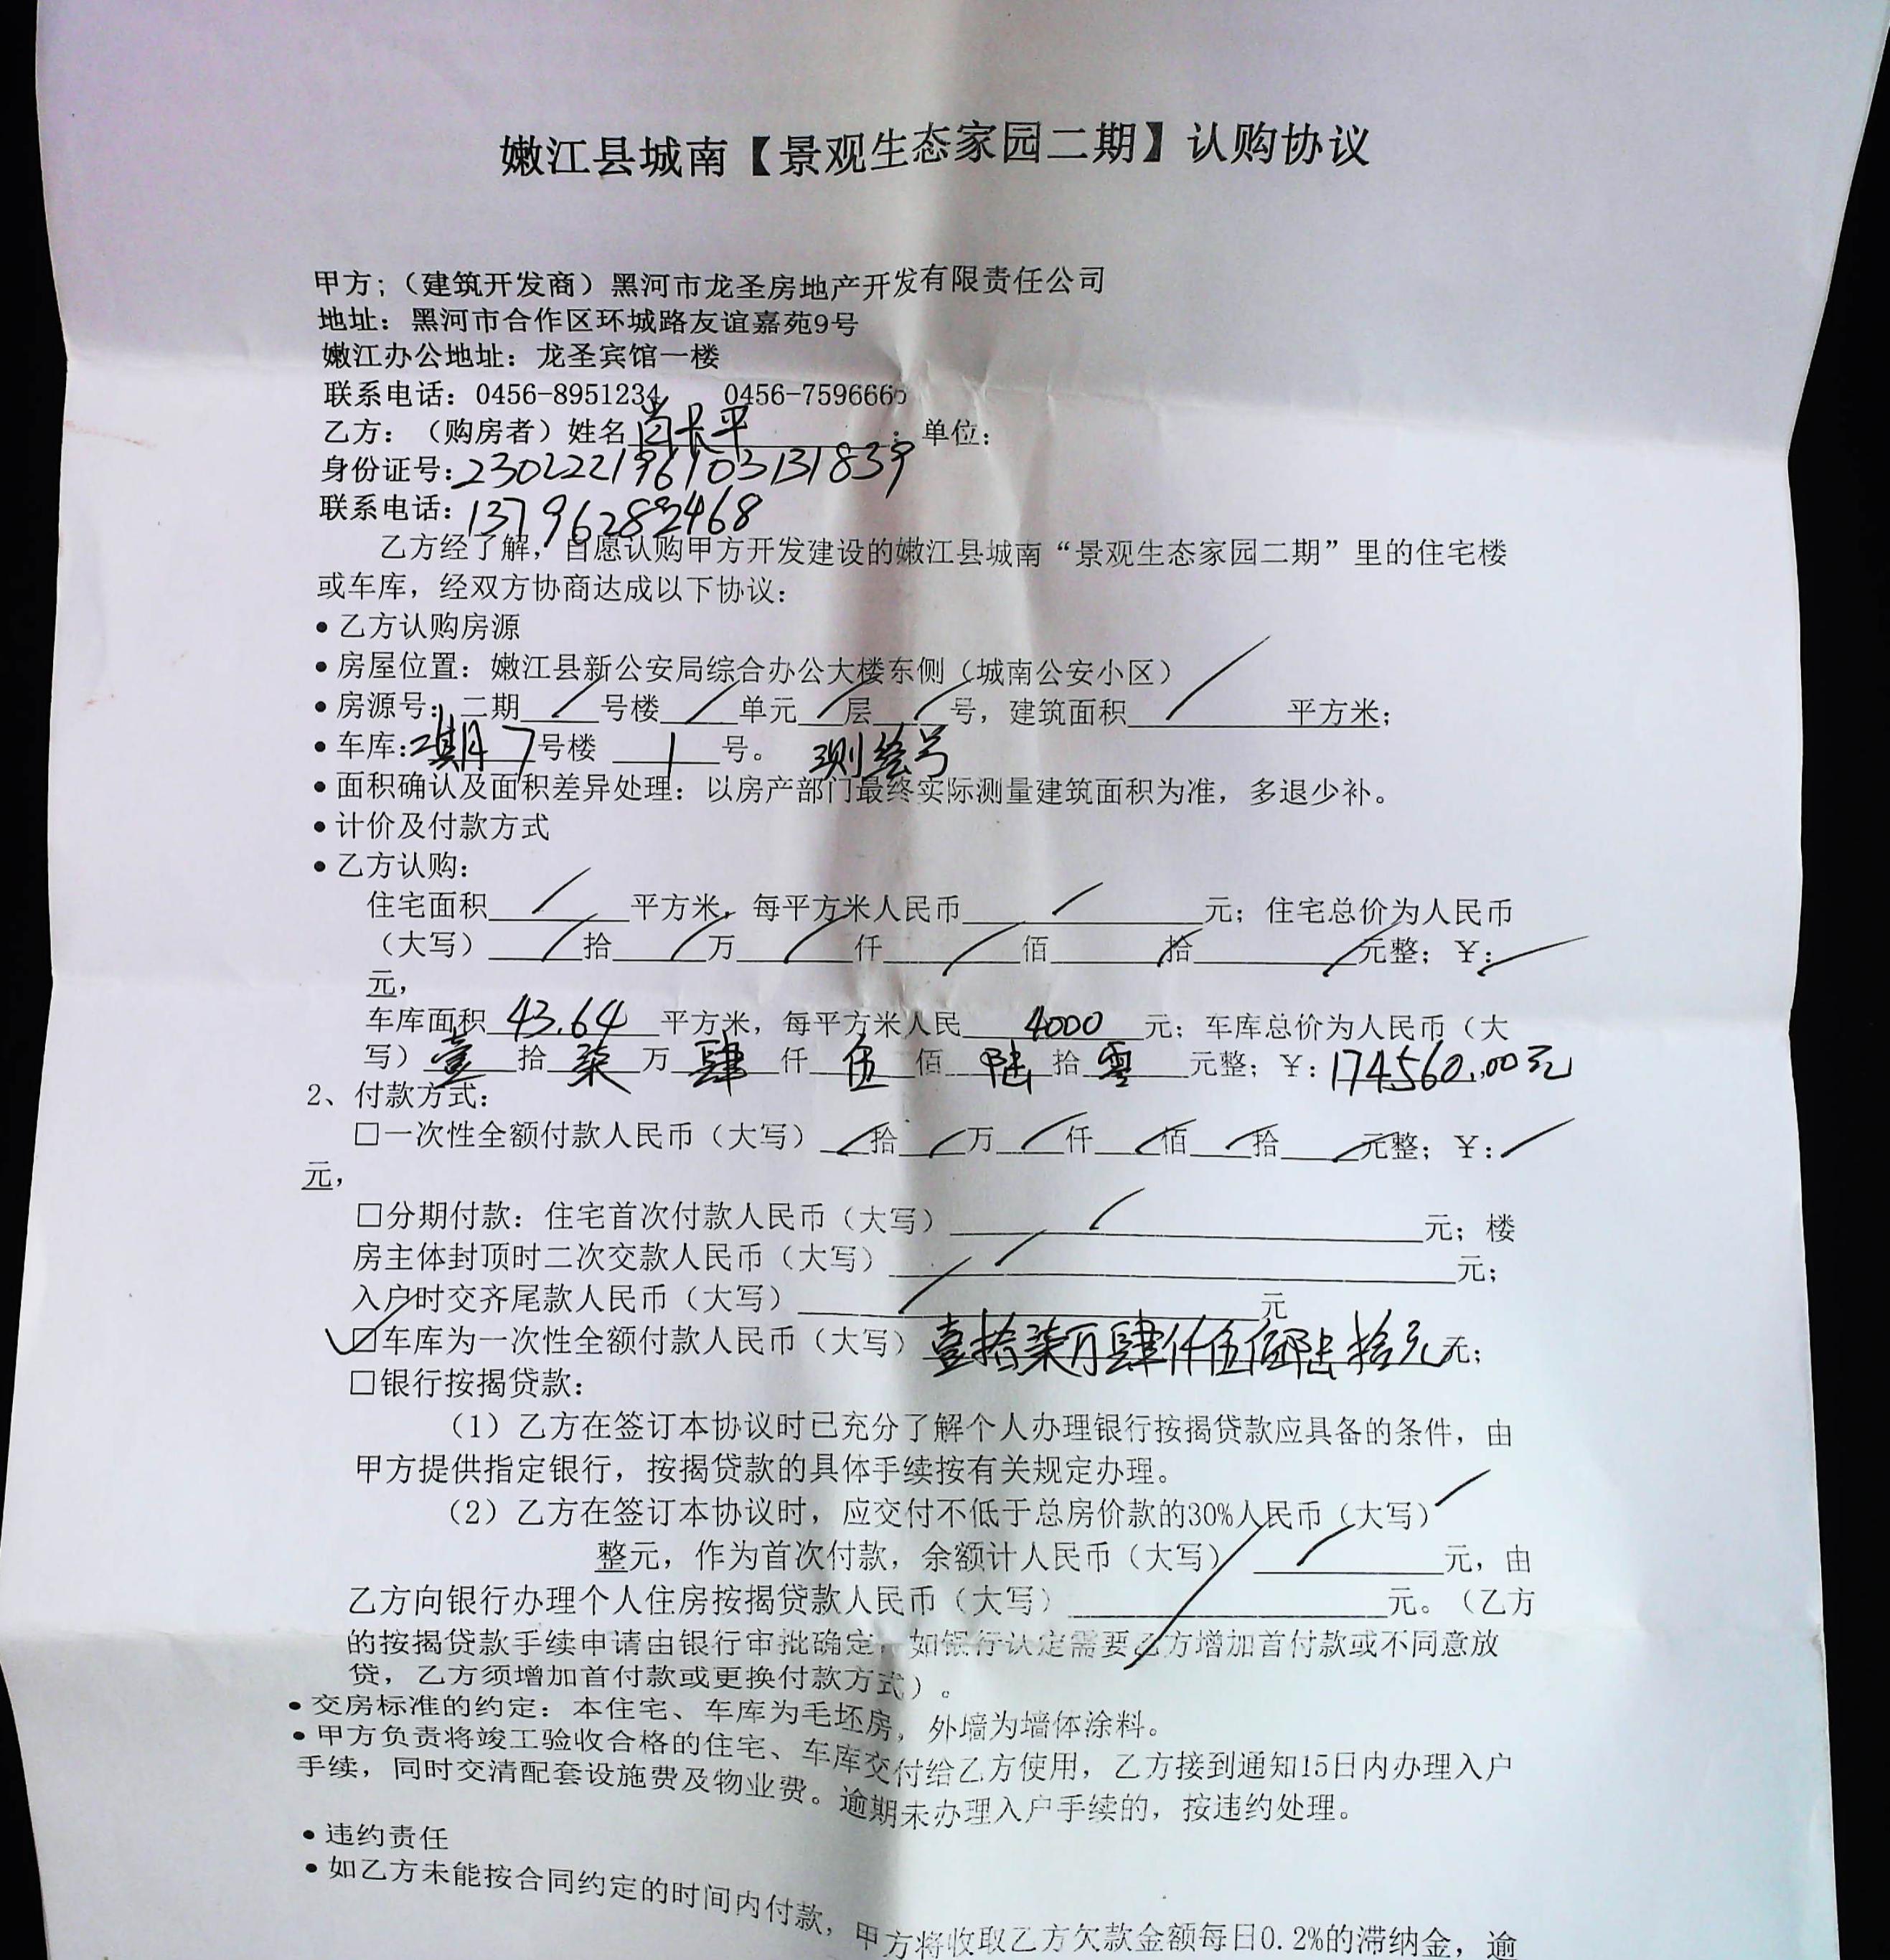 嫩江县城南【景观生态家园二期】认购协议
甲方;（建筑开发商）黑河市龙圣房地产开发有限责任公司
地址：黑河市合作区环城路友谊嘉苑9号
嫩江办公地址：龙圣宾馆一楼
联系电话：0456-8951234 0456-7596666
乙方：（购房者）姓名肖长平；单位：
身份证号:230222196103131839
联系电话:13796282468
乙方经了解，自愿认购甲方开发建设的嫩江县城南“景观生态家园二期”里的住宅楼
或车库，经双方协商达成以下协议：
• 乙方认购房源
• 房屋位置：嫩江县新公安局综合办公大楼东侧（城南公安小区）
• 房源号：二期 / 号楼 / 单元 / 层 / 号，建筑面积 / 平方米；
• 车库:2期 7 号楼 1 号。 测绘号
• 面积确认及面积差异处理：以房产部门最终实际测量建筑面积为准，多退少补。
• 计价及付款方式
• 乙方认购：
住宅面积 / 平方米，每平方米人民币 / 元；住宅总价为人民币
（大写） / 拾 / 万 / 仟 / 佰 / 拾 / 元整；￥： /
元，
车库面积 43.64 平方米，每平方米人民 4000 元；车库总价为人民币（大
写）壹 拾 柒 万 肆 仟 伍 佰 陆 拾 零 元整；￥：174560.00元
2、付款方式：
□一次性全额付款人民币（大写） / 拾 / 万 / 仟 / 佰 / 拾 / 元整；￥： /
元，
□分期付款：住宅首次付款人民币（大写） / 元；楼
房主体封顶时二次交款人民币（大写） / 元；
入户时交齐尾款人民币（大写） / 元
√□车库为一次性全额付款人民币（大写）壹拾柒万肆仟伍佰陆拾元元；
□银行按揭贷款：
（1）乙方在签订本协议时已充分了解个人办理银行按揭贷款应具备的条件，由
甲方提供指定银行，按揭贷款的具体手续按有关规定办理。
（2）乙方在签订本协议时，应交付不低于总房价款的30%人民币（大写） /
整元，作为首次付款，余额计人民币（大写） / 元，由
乙方向银行办理个人住房按揭贷款人民币（大写） / 元。（乙方
的按揭贷款手续申请由银行审批确定，如银行认定需要乙方增加首付款或不同意放
贷，乙方须增加首付款或更换付款方式）。
• 交房标准的约定：本住宅、车库为毛坯房，外墙为墙体涂料。
• 甲方负责将竣工验收合格的住宅、车库交付给乙方使用，乙方接到通知15日内办理入户
手续，同时交清配套设施费及物业费。逾期未办理入户手续的，按违约处理。
• 违约责任
• 如乙方未能按合同约定的时间内付款，甲方将收取乙方欠款金额每日0.2%的滞纳金，逾